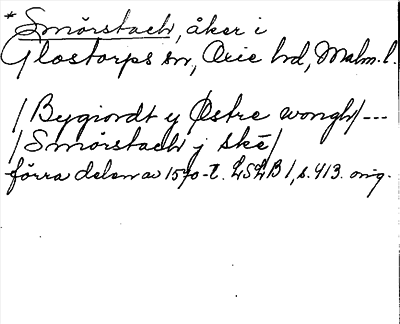 * Smörstack, åker i
Glostorps sn, Oxie hd, Malm. l.
/Bygiordt y Østre wongh/---
/Smörstach j skē/
förra delen av 1570-t. LSLB 1, s. 413. orig.